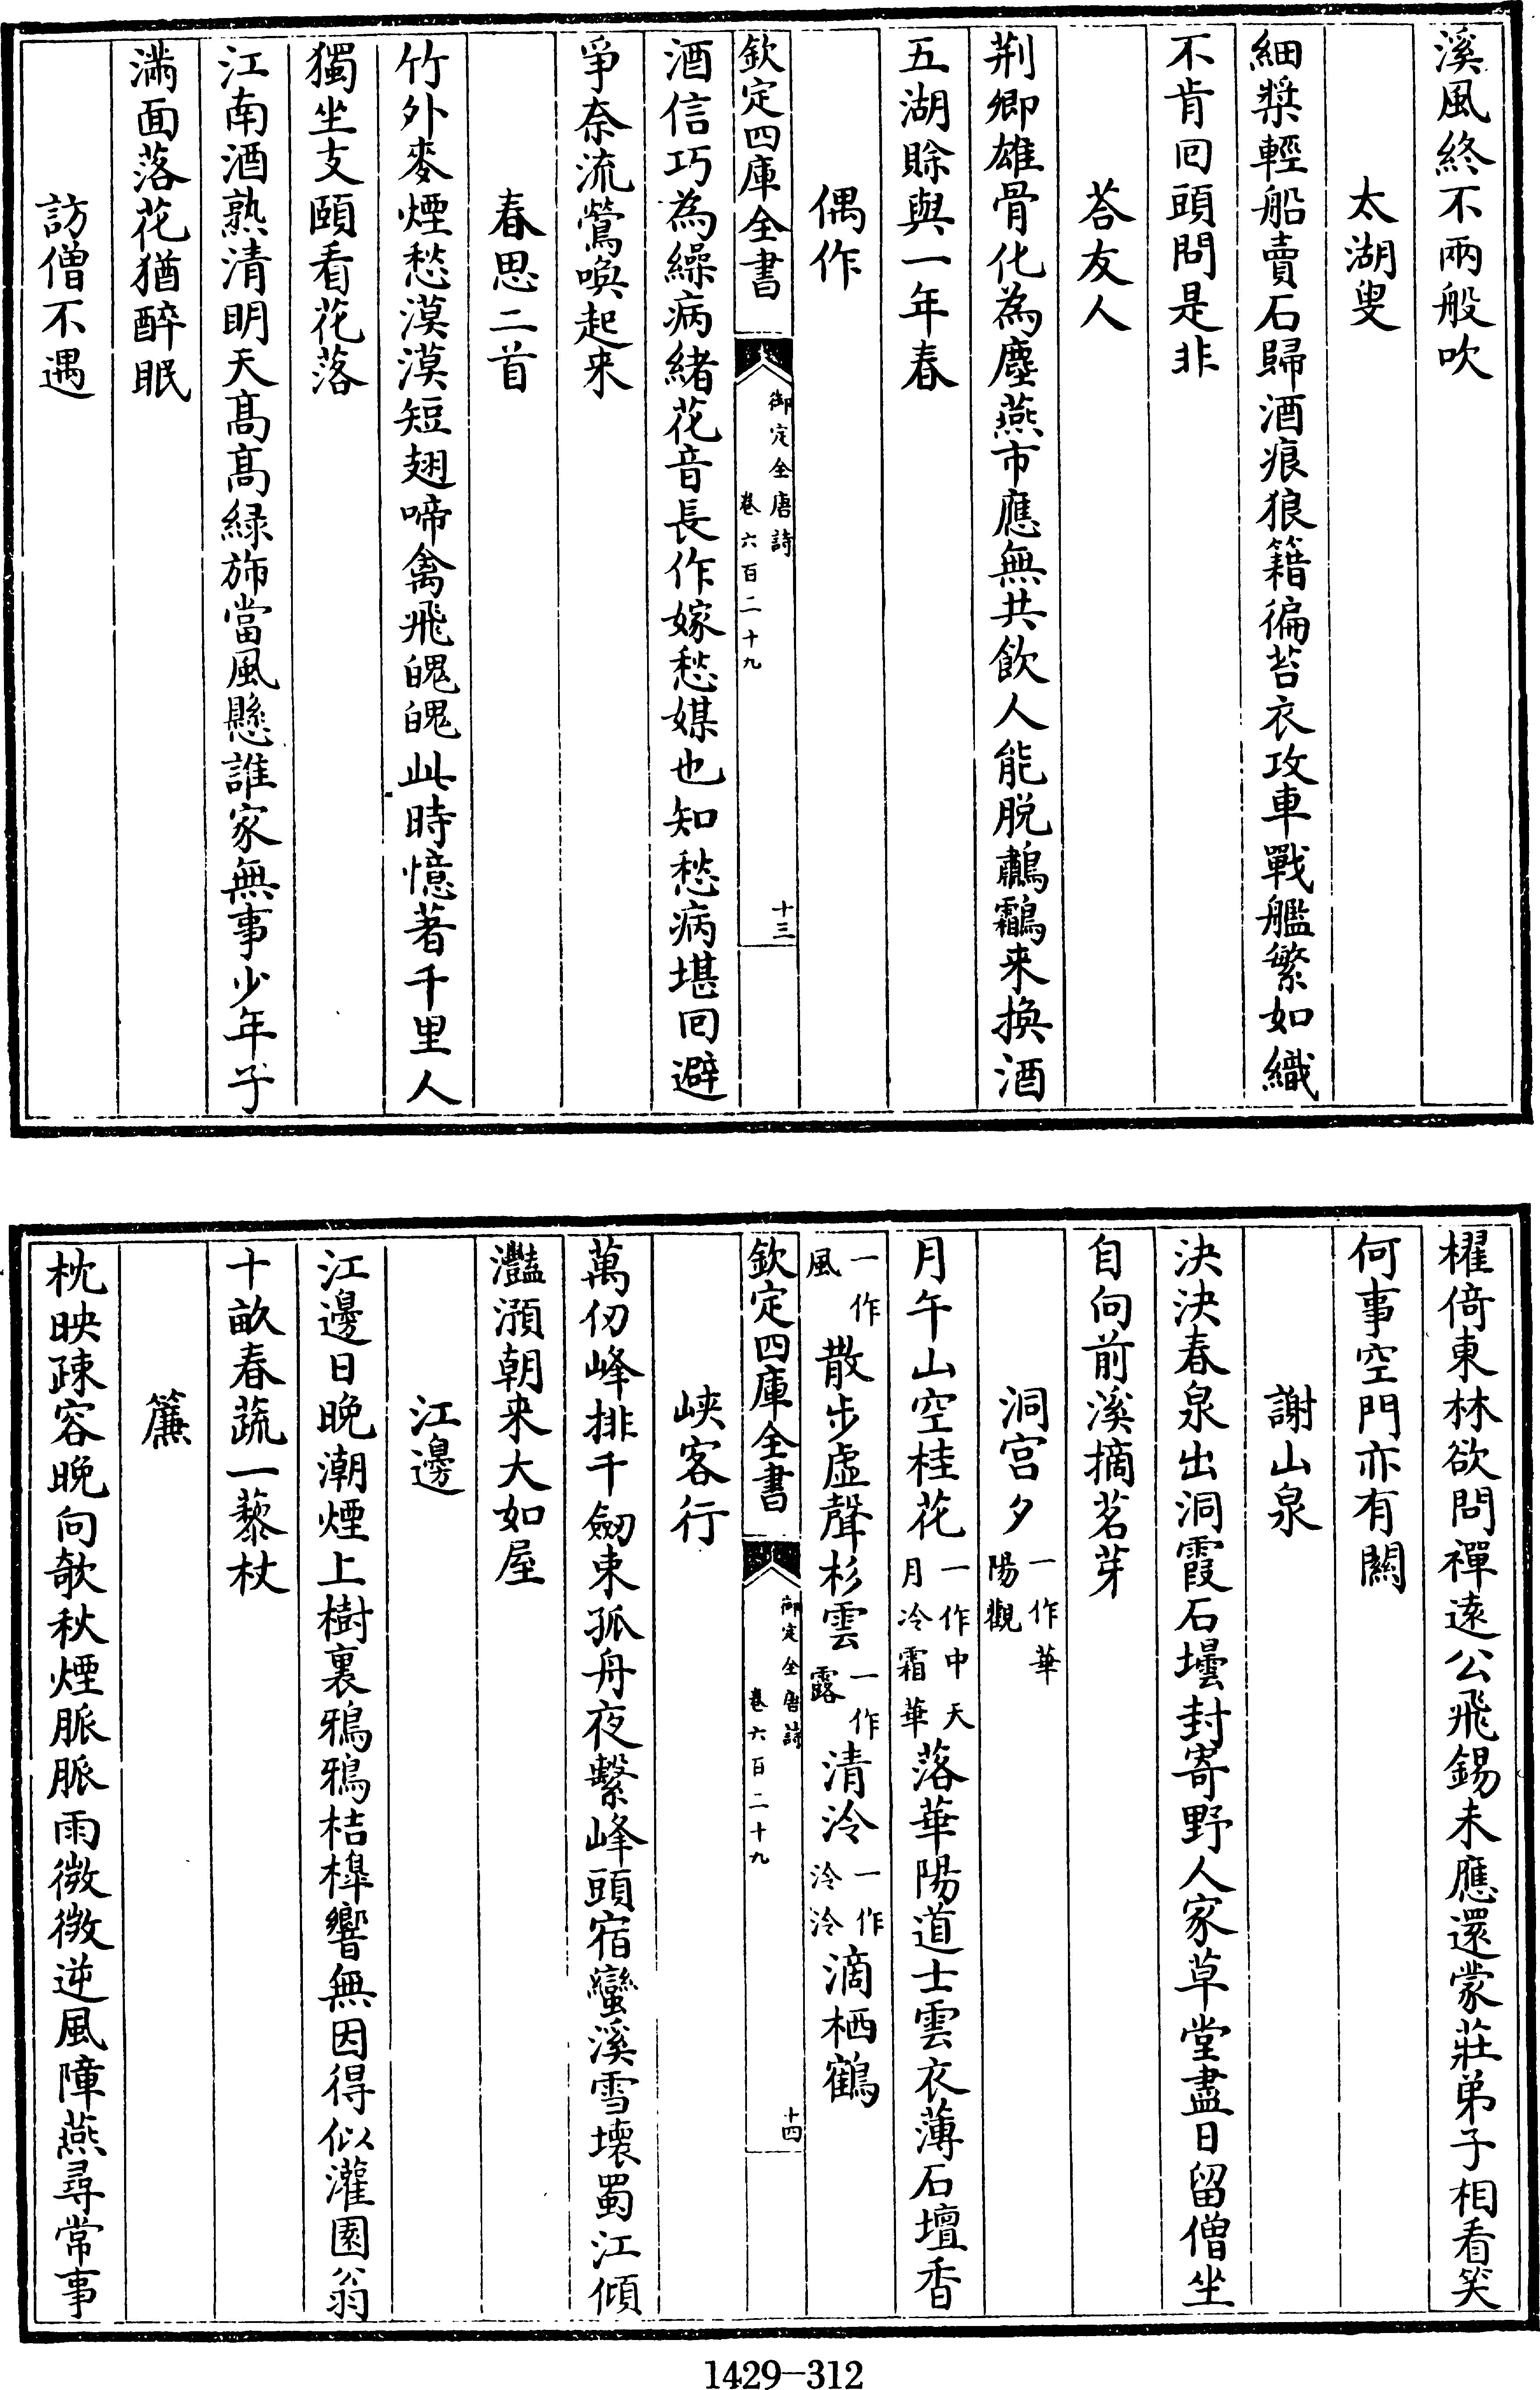 溪風終不兩般吹
太湖叟
細槳輕船賣石歸酒痕狼籍徧苔衣攻車戰艦繁如織
不肯囘頭問是非
荅友人
荆卿雄骨化為塵燕市應無共飲人能脱鷫鸘来換酒
五湖賒與一年春
偶作
欽定四庫全書
御定全唐詩
卷六百二十九
十三
酒信巧為繰病緒花音長作嫁愁媒也知愁病堪囘避
爭奈流鶯喚起来
春思二首
竹外麥煙愁漠漠短翅啼禽飛魄魄此時憶著千里人
獨坐支頤看花落
江南酒熟清明天髙髙緑斾當風懸誰家無事少年子
滿面落花猶醉眠
訪僧不遇
櫂倚東林欲問禪逺公飛錫未應還蒙莊弟子相看笑
何事空門亦有關
謝山泉
決決春泉出洞霞石壜封寄野人家草堂盡日留僧坐
自向前溪摘茗芽
洞宫夕一作華陽觀
月午山空桂花一作中天月冷霜華落華陽道士雲衣薄石壇香
一作風散步虛聲杉雲一作露清泠一作泠泠滴栖鶴
欽定四庫全書
御定全唐詩
卷六百二十九
十四
峽客行
萬仞峰排千劒束孤舟夜繫峰頭宿蠻溪雪壞蜀江傾
灩澦朝来大如屋
江邊
江邊日晚潮煙上樹裏鴉鴉桔槔響無因得似灌園翁
十畝春蔬一藜杖
簾
枕映疎容晚向欹秋煙脈脈雨微微逆風障燕尋常事
1429-312